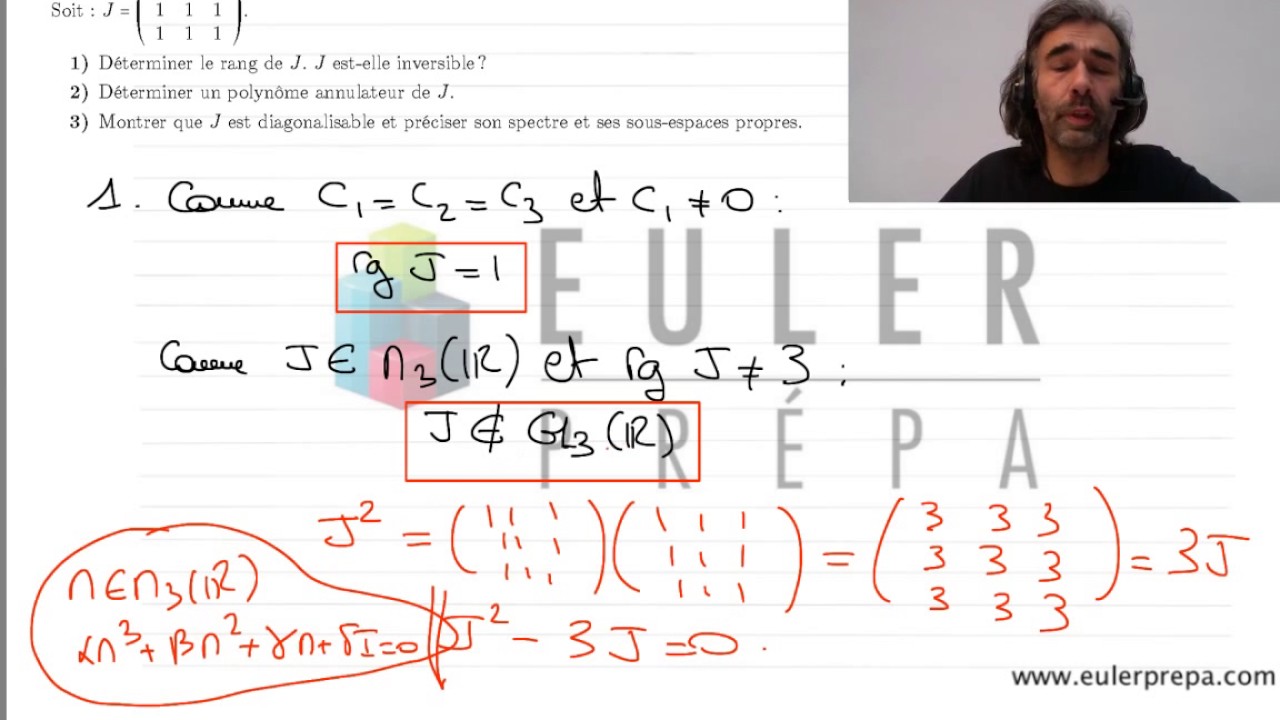 Soit : J = ( 1 1 1
1 1 1 ).
1) Déterminer le rang de J. J est-elle inversible ?
2) Déterminer un polynôme annulateur de J.
3) Montrer que J est diagonalisable et préciser son spectre et ses sous-espaces propres.
1. Comme C₁ = C₂ = C₃ et C₁ ≠ 0 :
rg J = 1
Comme J ∈ M₃(ℝ) et rg J ≠ 3 :
J ∉ GL₃(ℝ)
EULER
PRÉPA
J² = ( 1 1 1
1 1 1
1 1 1 ) ( 1 1 1
1 1 1
1 1 1 ) = ( 3 3 3
3 3 3
3 3 3 ) = 3J
M ∈ M₃(ℝ)
αM³ + βM² + γM + δI = 0
J² - 3J = 0.
www.eulerprepa.com